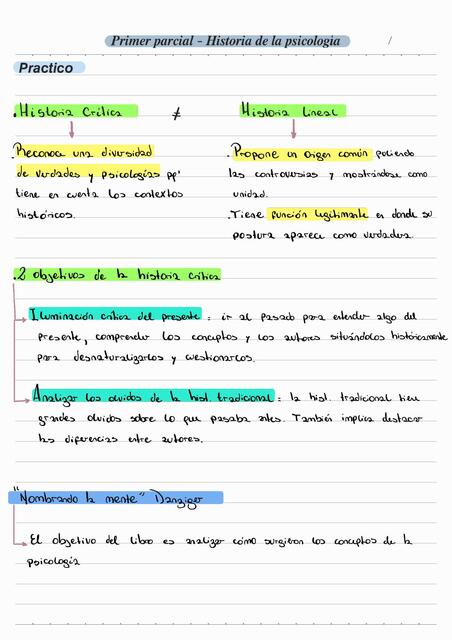 Primer parcial - Historia de la psicologia /
Practico
. Historia Crítica ≠ Historia lineal
. Reconoce una diversidad
de verdades y psicologías pq'
tiene en cuenta los contextos
históricos.
. Propone un origen común puliendo
las controversias y mostrándose como
unidad.
. Tiene función legitimante es donde su
postura aparece como verdadera
. 2 objetivos de la historia crítica
Iluminación crítica del presente: ir al pasado para entender algo del
presente, comprender los conceptos y los autores situándolos históricamente
para desnaturalizarlos y cuestionarlos.
Analizar los olvidos de la hist. tradicional: la hist. tradicional tiene
grandes olvidos sobre lo que pasaba antes. También implica destacar
las diferencias entre autores.
"Nombrando la mente" Danziger
El objetivo del libro es analizar cómo surgieron los conceptos de la
psicología